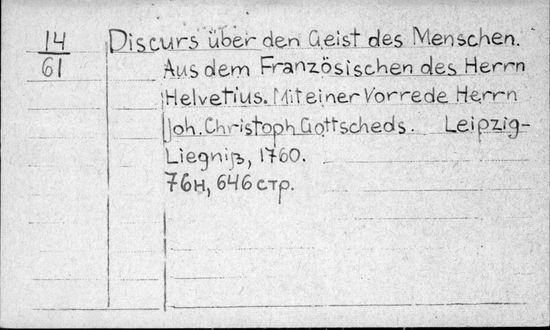 14 Discurs über den Geist des Menschen.
61 Aus dem Französischen des Herrn
Helvetius. Mit einer Vorrede Herrn
Joh. Christoph Gottscheds. Leipzig-
Liegniß, 1760.
76н, 646 стр.